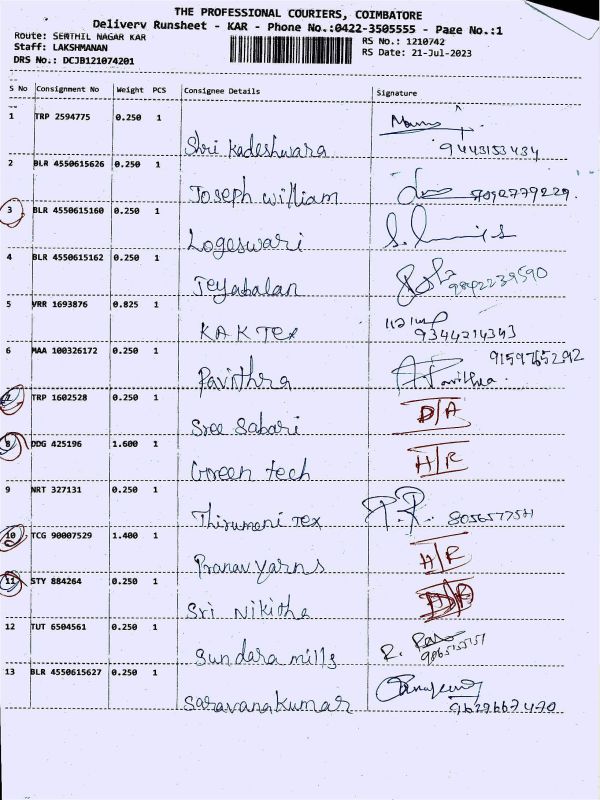 THE PROFESSIONAL COURIERS, COIMBATORE
Delivery Runsheet - KAR - Phone No.:0422-3505555 - Page No.:1
Route: SENTHIL NAGAR KAR
RS No.: 1210742
Staff: LAKSHMANAN
RS Date: 21-Jul-2023
DRS No.: DCJB121074201
S No Consignment No Weight PCS Consignee Details Signature
1 TRP 2594775 0.250 1
Shri Kadeshwara 9443153434
2 BLR 4550615626 0.250 1
Joseph william 7092779229.
3 BLR 4550615160 0.250 1
Logeswari
4 BLR 4550615162 0.250 1
Jeyabalan 9842239590
5 VRR 1693876 0.825 1
KAK Tex 9344214343
6 MAA 100326172 0.250 1 9159765292
Pavithra A. Pavithra.
7 TRP 1602528 0.250 1
Sree Sabari D/A
8 DDG 425196 1.600 1
Green tech H/R
9 NRT 327131 0.250 1
Thirumeni Tex
10 TCG 90007529 1.400 1
Pranav yarns H/R
11 STY 884264 0.250 1
Sri Nikitha
12 TUT 6504561 0.250 1
Sundara mills R.
13 BLR 4550615627 0.250 1
Saravanakumar 9629667470